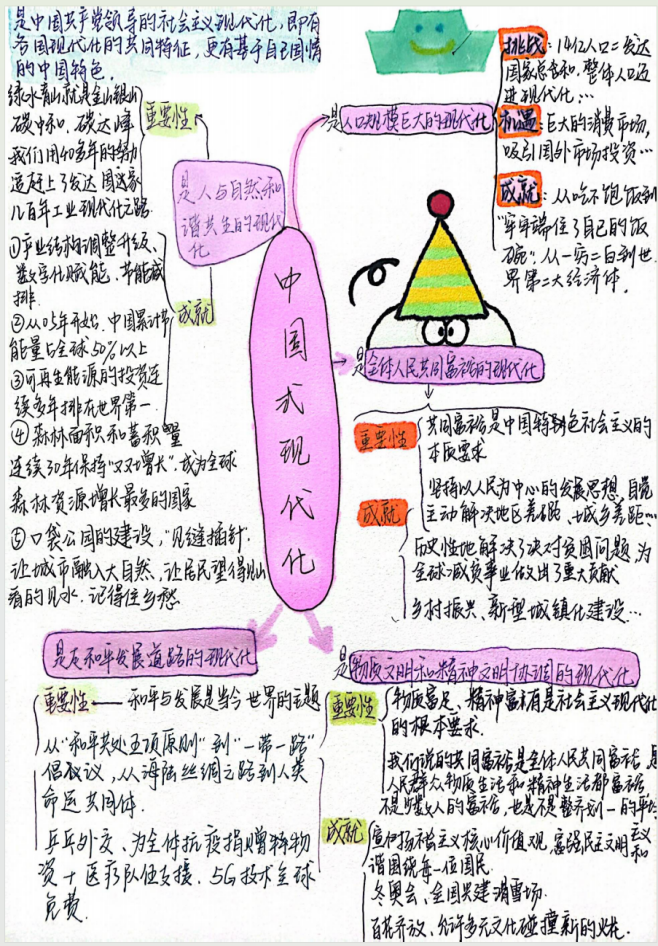 是中国共产党领导的社会主义现代化,即有
各国现代化的共同特征,更有基于自己国情
的中国特色。
中国式现代化
是人口规模巨大的现代化
挑战:14亿人口=发达
国家总和,整体人口迈
进现代化,…
机遇:巨大的消费市场,
吸引国外市场投资…
成就:从吃不饱饭到
“牢牢端住了自己的饭
碗”.从一穷二白到世
界第二大经济体.
是人与自然和
谐共生的现代
化
重要性
绿水青山就是金山银山
碳中和,碳达峰
我们用40多年的努力
追赶上了发达国家
几百年工业现代化之路
成就
①产业结构调整升级、
数字化赋能,节能减
排.
②从05年开始,中国累计节
能量占全球50%以上
③可再生能源的投资连
续多年排在世界第一
④森林面积和蓄积量
连续30年保持“双增长”.成为全球
森林资源增长最多的国家
⑤口袋公园的建设,“见缝插针.
让城市融入大自然,让居民望得见山
看的见水.记得住乡愁
是全体人民共同富裕的现代化
重要性
共同富裕是中国特色社会主义的
本质要求
成就
坚持以人民为中心的发展思想,自觉
主动解决地区差距、城乡差距…
历史性地解决了绝对贫困问题,为
全球减贫事业做出了重大贡献
乡村振兴、新型城镇化建设…
是走和平发展道路的现代化
重要性
和平与发展是当今世界的主题
从“和平共处五项原则”到“一带一路”
倡议,从海陆丝绸之路到人类
命运共同体.
乒乓外交、为全体抗疫捐赠物
资+医疗队伍支援.5G技术全球
免费.
是物质文明和精神文明协调的现代化
重要性
物质富足、精神富有是社会主义现代化
的根本要求.
我们说的共同富裕是全体人民共同富裕,是
人民群众物质生活和精神生活都富裕
不是少数人的富裕,也是不是整齐划一的平均
成就
宣扬社会主义核心价值观,富强民主文明和
谐围绕每一位国民.
冬奥会、全国共建滑雪场.
百花齐放、允许多元文化碰撞新的火花.